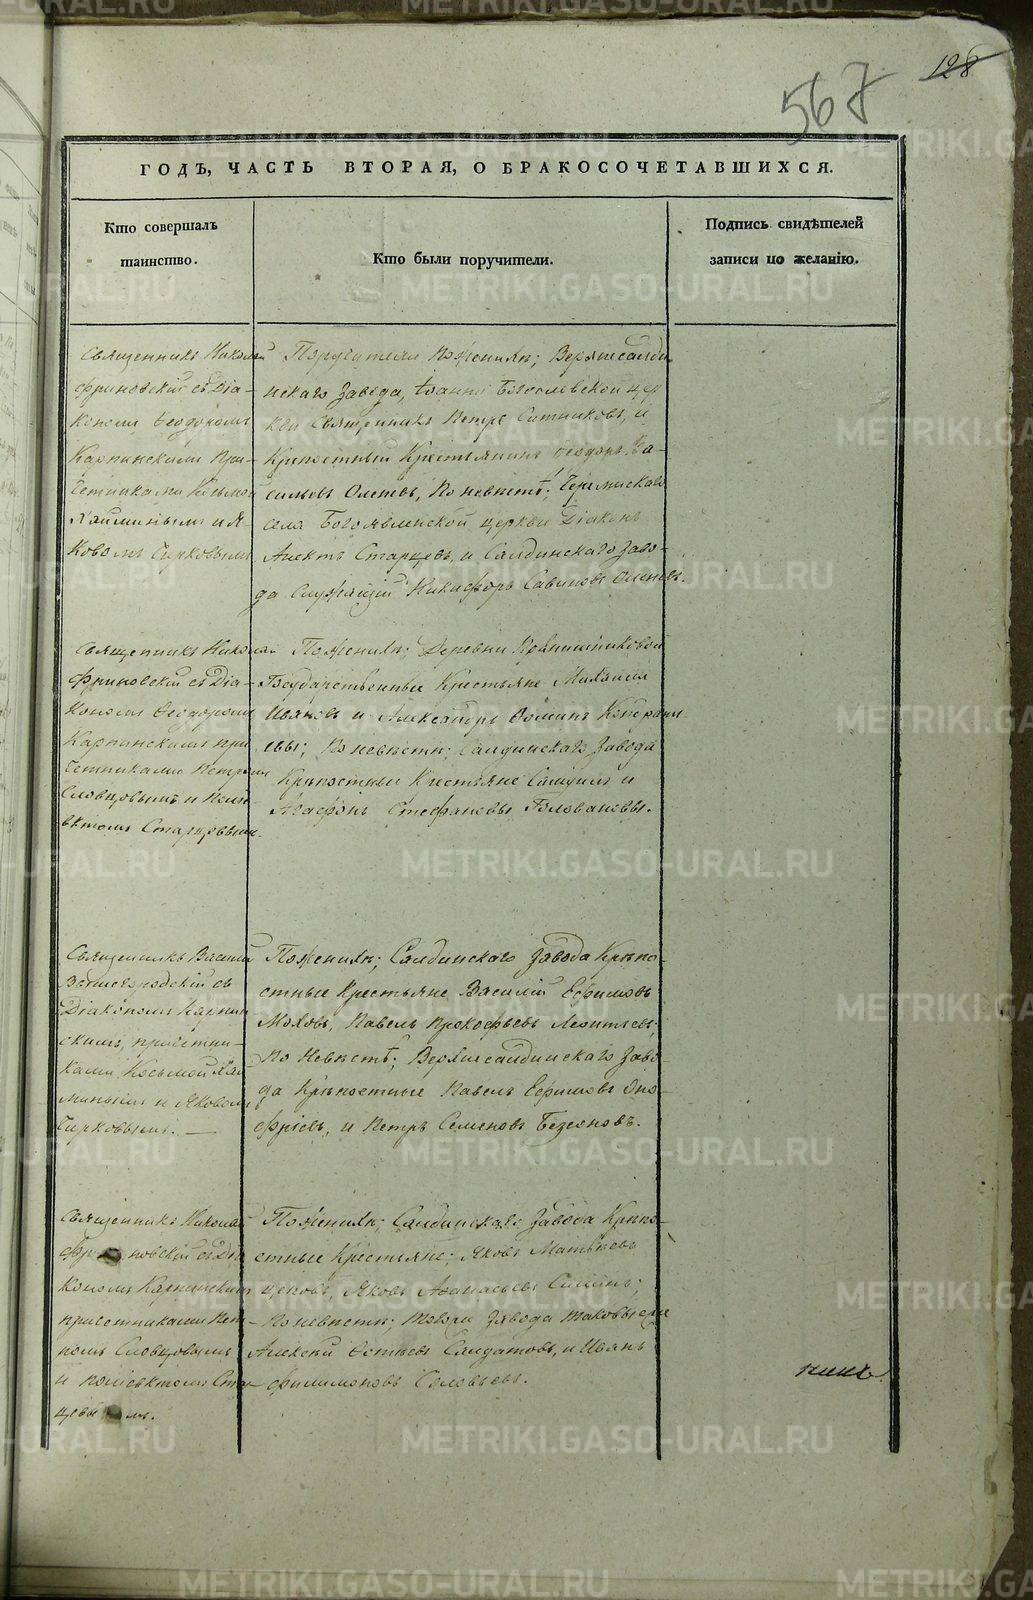 567
128
ГОДЪ, ЧАСТЬ ВТОРАЯ, О БРАКОСОЧЕТАВШИХСЯ.
Кто совершалъ
таинство.
Кто были поручители.
Подпись свидѣтелей
записи по желанію.
Священникъ Николай
Фриновскій съ Діа-
кономъ Ѳеодоромъ
Карпинскимъ при-
четниками Козьмой
Ляминымъ и Я-
ковомъ Чирковымъ
Поручители по женихѣ; Верхнесалди-
нскаго завода, Іоанно Богословской цер
кви Священникъ Петръ Ситниковъ, и
Крѣпостный Крестьянинъ Ѳеодоръ Ва-
сильевъ по невѣстѣ;
села Богоявленской церкви Діаконъ
Старцевъ, и Салдинскаго заво-
да Служащій Никифоръ Савиновъ
Священникъ Николай
Фриновскій съ Діа-
кономъ Ѳеодоромъ
Карпинскимъ при
четниками Петромъ
Словцовымъ и Поли-
ектомъ Старцевымъ
По женихѣ; Деревни
Государственные Крестьяне Михаилъ
Ивановъ и Александръ Ѳоминъ Кондрать
евы; По невѣстѣ; Салдинскаго завода
Крѣпостные Крестьяне Самуилъ и
Агафонъ Стефановы Головановы.
Священникъ Василій
съ
Діакономъ Карпин
скимъ, причетни-
ками Косьмой Ля
минымъ и Яковомъ
Чирковымъ.
По женихѣ; Салдинскаго завода Крѣпо-
стные Крестьяне Василій Ефимовъ
Моховъ, Павелъ Прокофьевъ Леонтьевъ;
по Невѣстѣ; Верхнесалдинскаго Заво-
да Крѣпостные Павелъ Ефимовъ Оно-
фріевъ, и Петръ Семеновъ
Священникъ Николай
Фриновскій съ Діа
кономъ Карпинскимъ
причетниками Пет
ромъ Словцовымъ
и Поліектомъ Стар
цевымъ.
По женихѣ; Салдинскаго Завода Крѣпо-
стные Крестьяне; Яковъ Матвѣевъ
Яковъ Аѳанасьевъ
По невѣстѣ; того же завода таковые же
Алексѣй Солдатовъ, и Иванъ
Филимоновъ Соловьевъ.